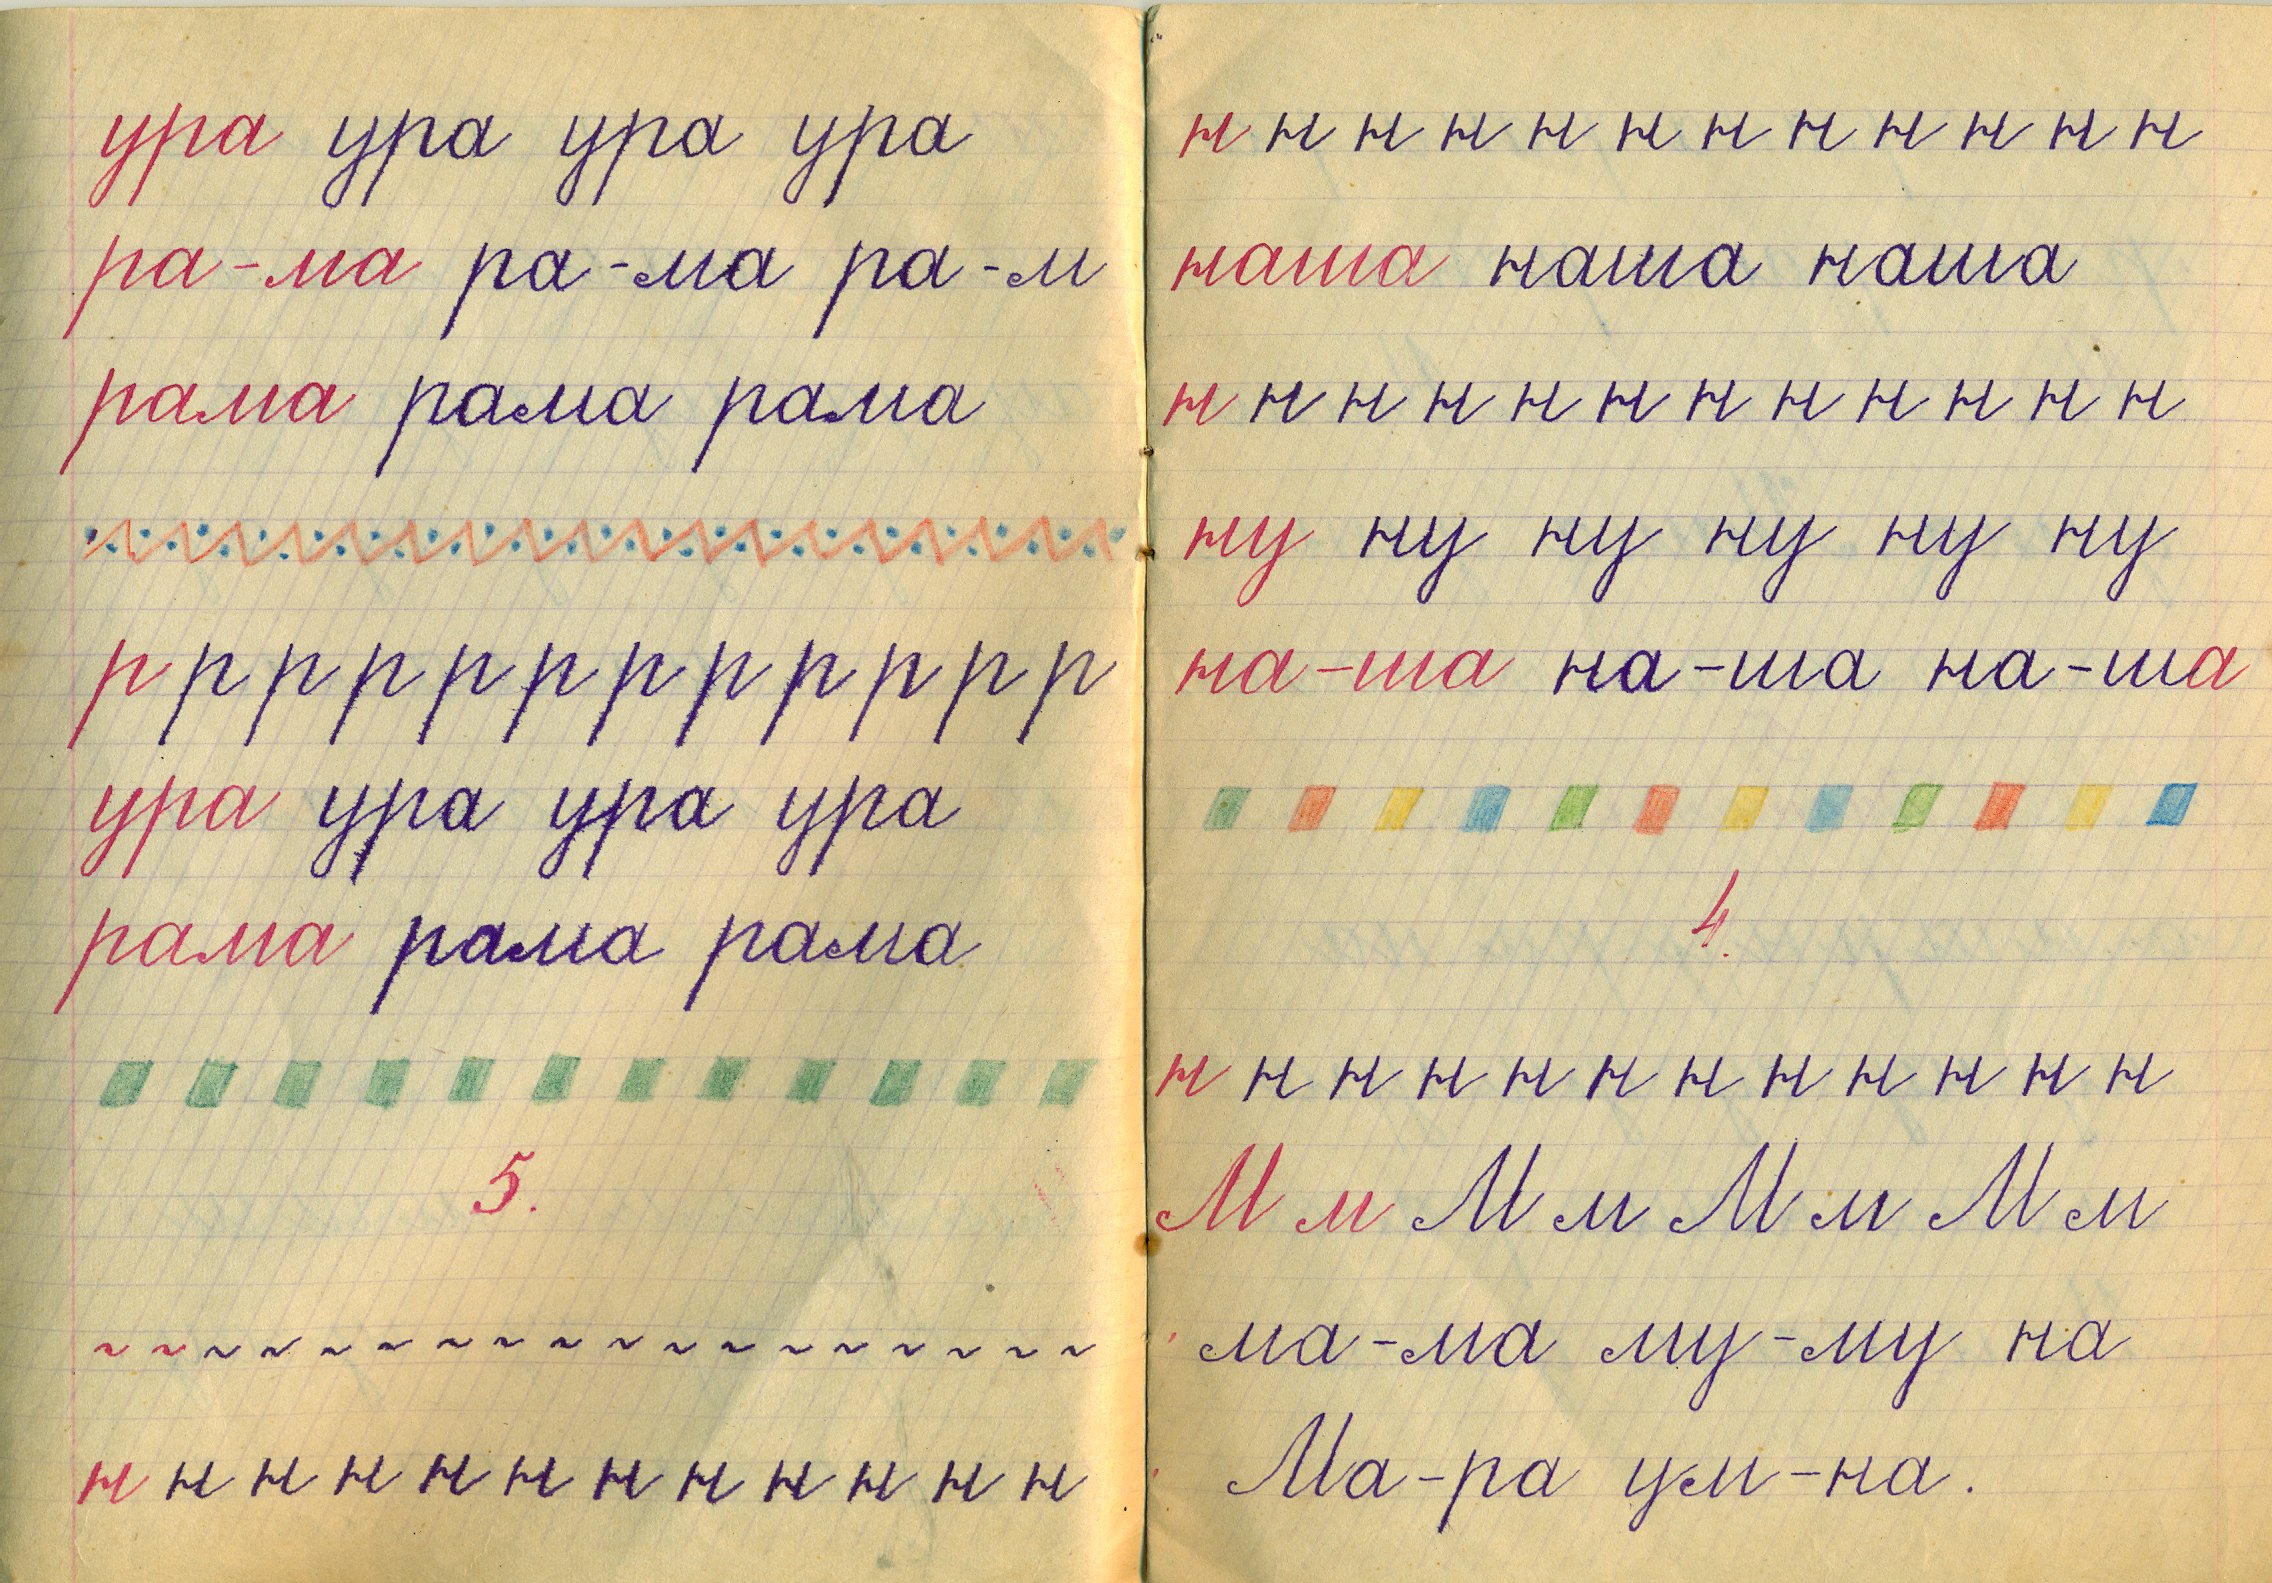 ура ура ура ура
ра-ма ра-ма ра-м
рама рама рама
р р р р р р р р р р р р
ура ура ура ура
рама рама рама
5.
н н н н н н н н н н н н
н н н н н н н н н н н н
наша наша наша
н н н н н н н н н н н н
ну ну ну ну ну ну
на-ша на-ша на-ша
4.
н н н н н н н н н н н н
М м М м М м М м
ма-ма му-му на
Ма-ра ум-на.